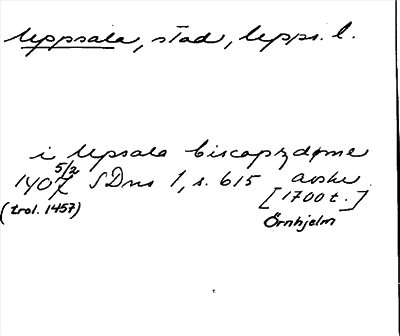 Uppsala, stad, Upps. l.
i Upsala biscopzdøme
5/2
1407 SDns 1, s. 615 avskr.
(trol. 1457) [1700 t.]
Örnhjelm